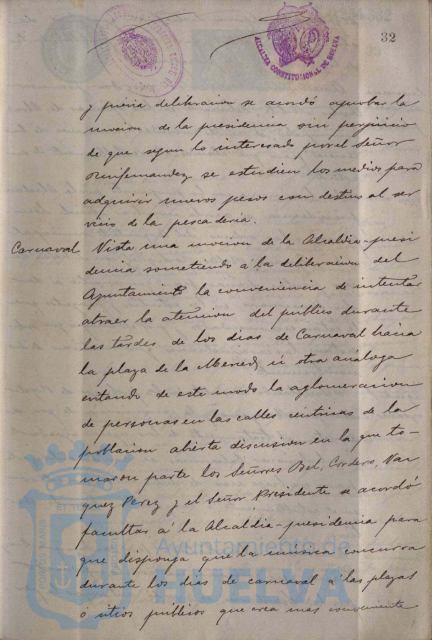 32
ALCALDIA CONSTITUCIONAL DE HUELVA
y previa deliberacion se acordó aprobar la
mocion de la presidencia sin perjuicio
de que segun lo interesado por el Señor
se estudien los medios para
adquirir nuevos pesos con destino al ser
vicio de la pescaderia.
Carnaval Vista una mocion de la Alcaldia-presi
dencia sometiendo á la deliberacion del
Ayuntamiento la conveniencia de intentar
atraer la atencion del público durante
las tardes de los dias de Carnaval hácia
la plaza de la Merced ú otra análoga
evitando de este modo la aglomeracion
de personas en las calles centricas de la
poblacion abierta discusion en la que to-
maron parte los Señores Bel, Cordero, Vaz
quez Perez y el Señor Presidente se acordó
facultar á la Alcaldia-presidencia para
que disponga que la música concurra
durante los dias de carnaval á las plazas
ó sitios públicos que crea mas conveniente
Ayuntamiento de
HUELVA